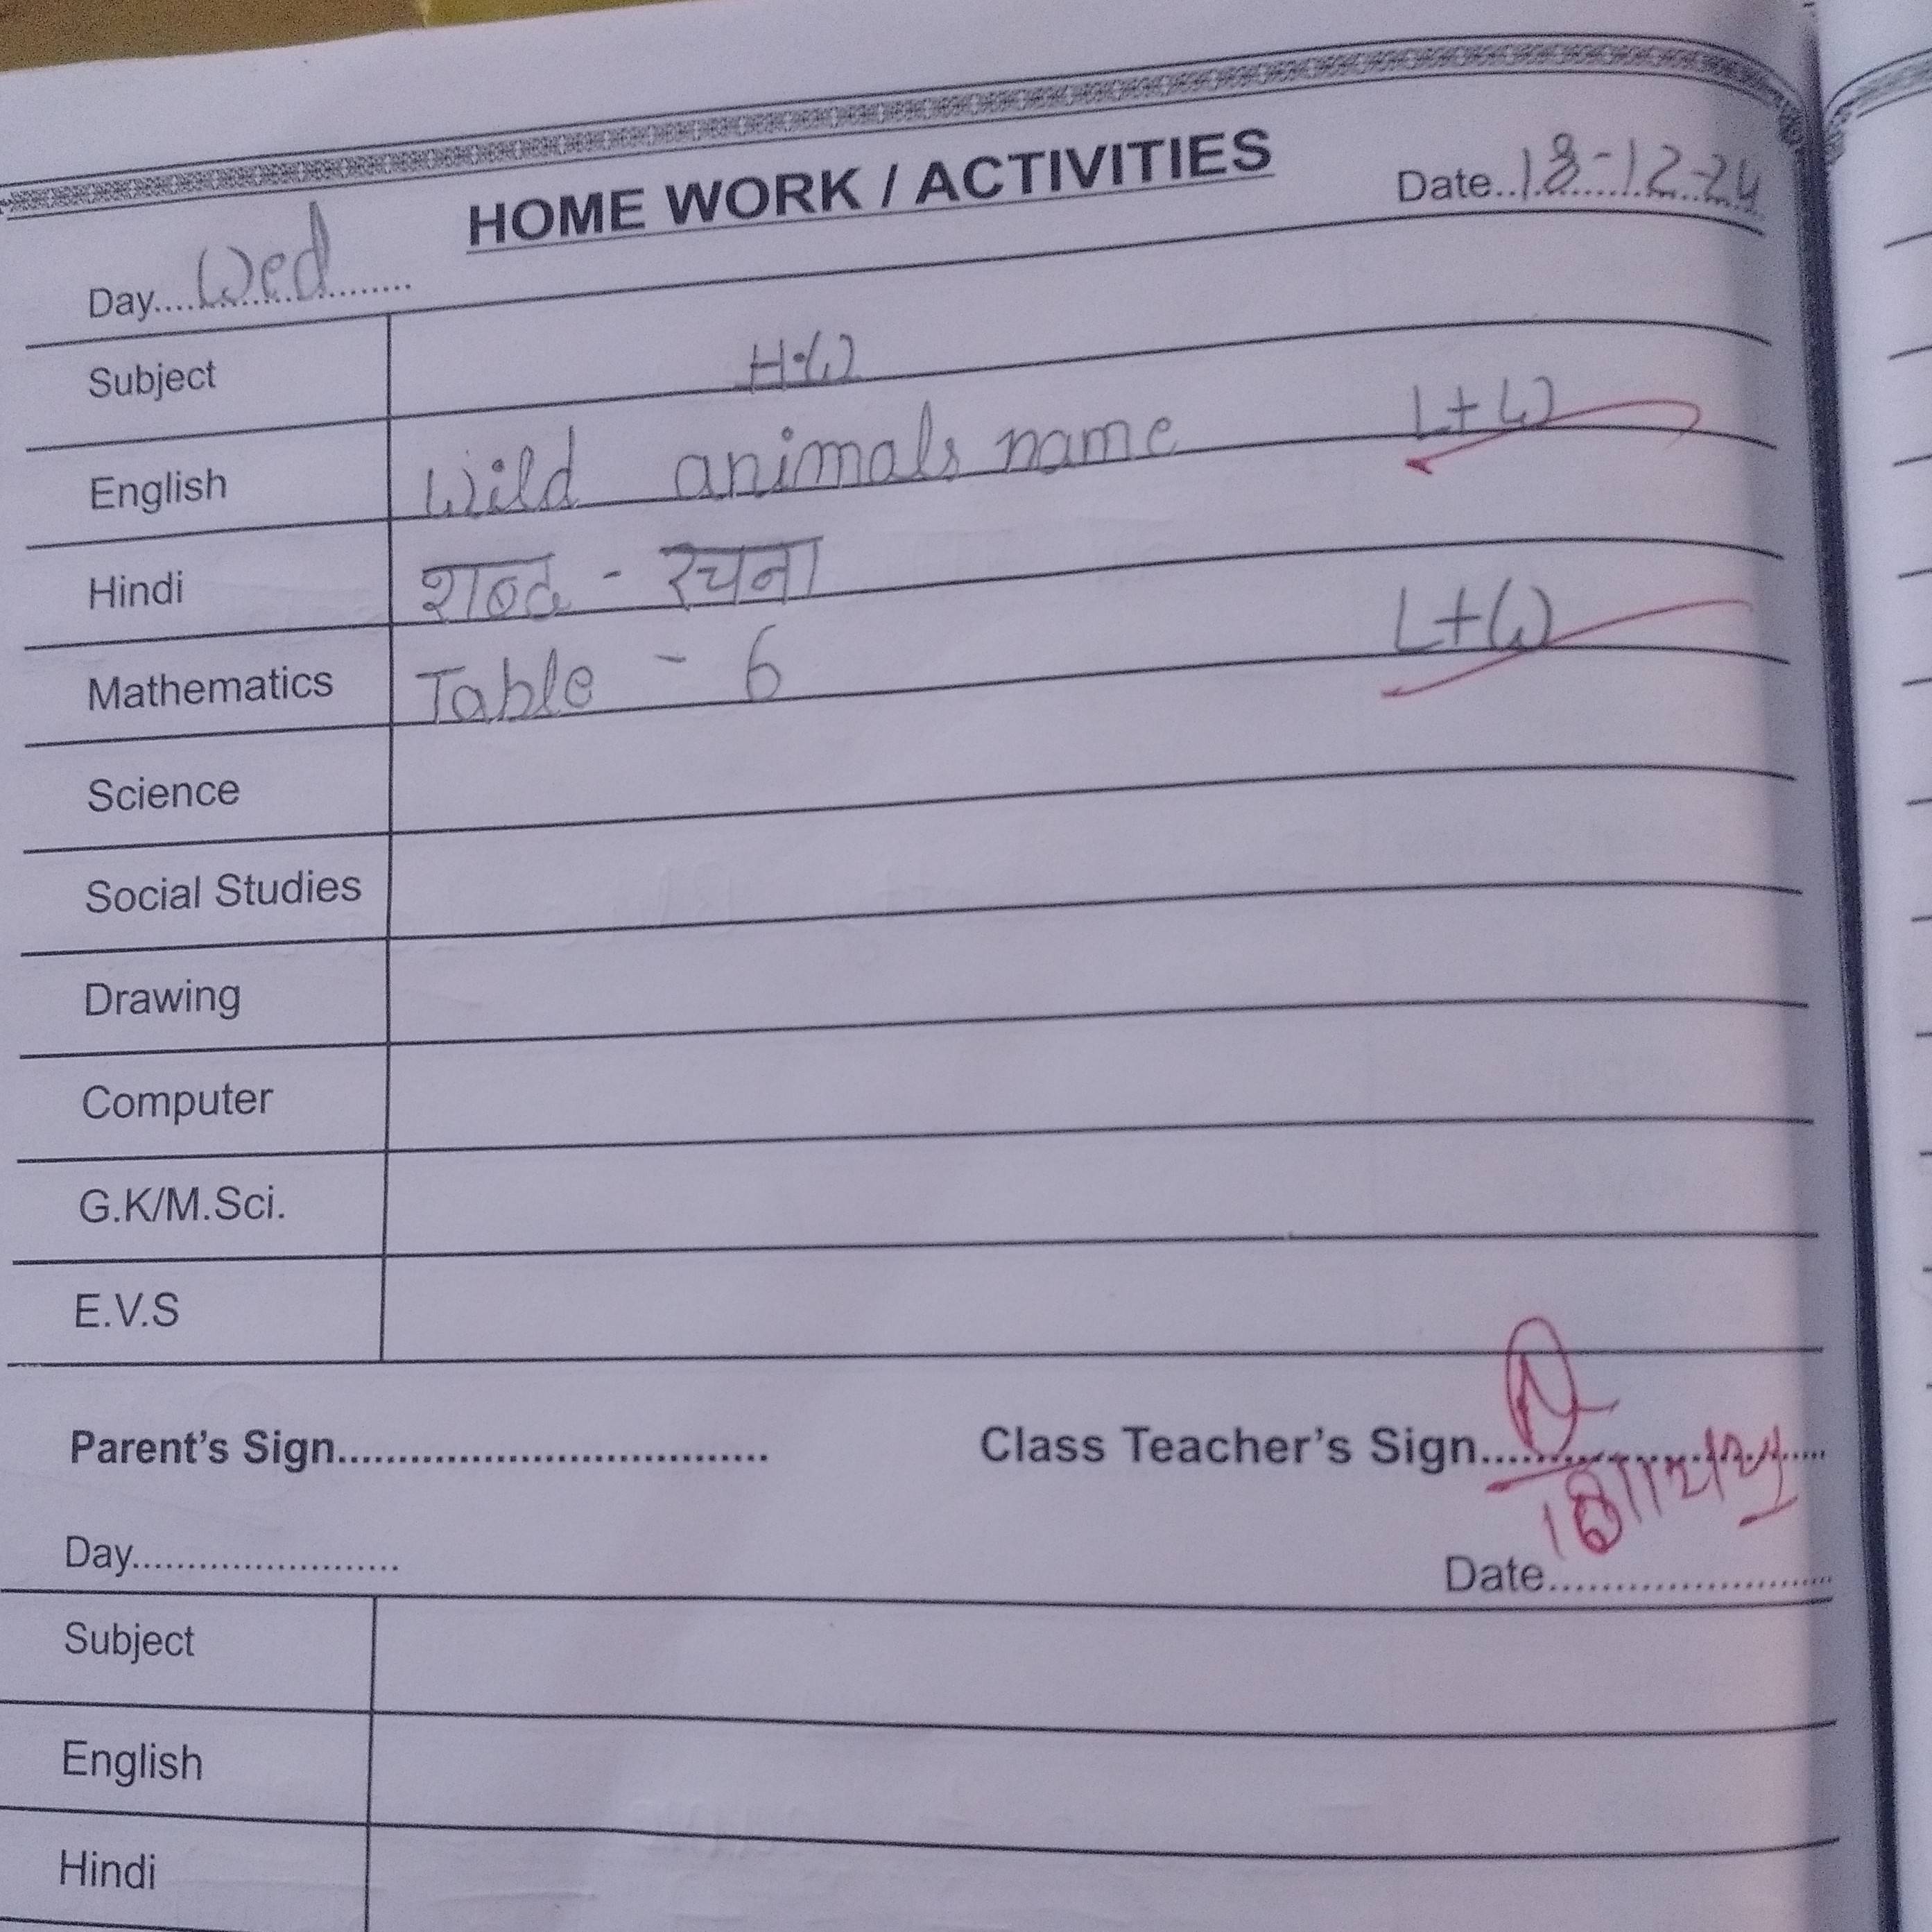 HOME WORK / ACTIVITIES
Day....Wed.......... Date..18-12-24
Subject H.W
English Wild animals name L+W
Hindi शब्द - रचना
Mathematics Table - 6 L+W
Science
Social Studies
Drawing
Computer
G.K/M.Sci.
E.V.S
Parent's Sign.................................... Class Teacher's Sign..............................
18/12/24
Day........................ Date..........................
Subject
English
Hindi